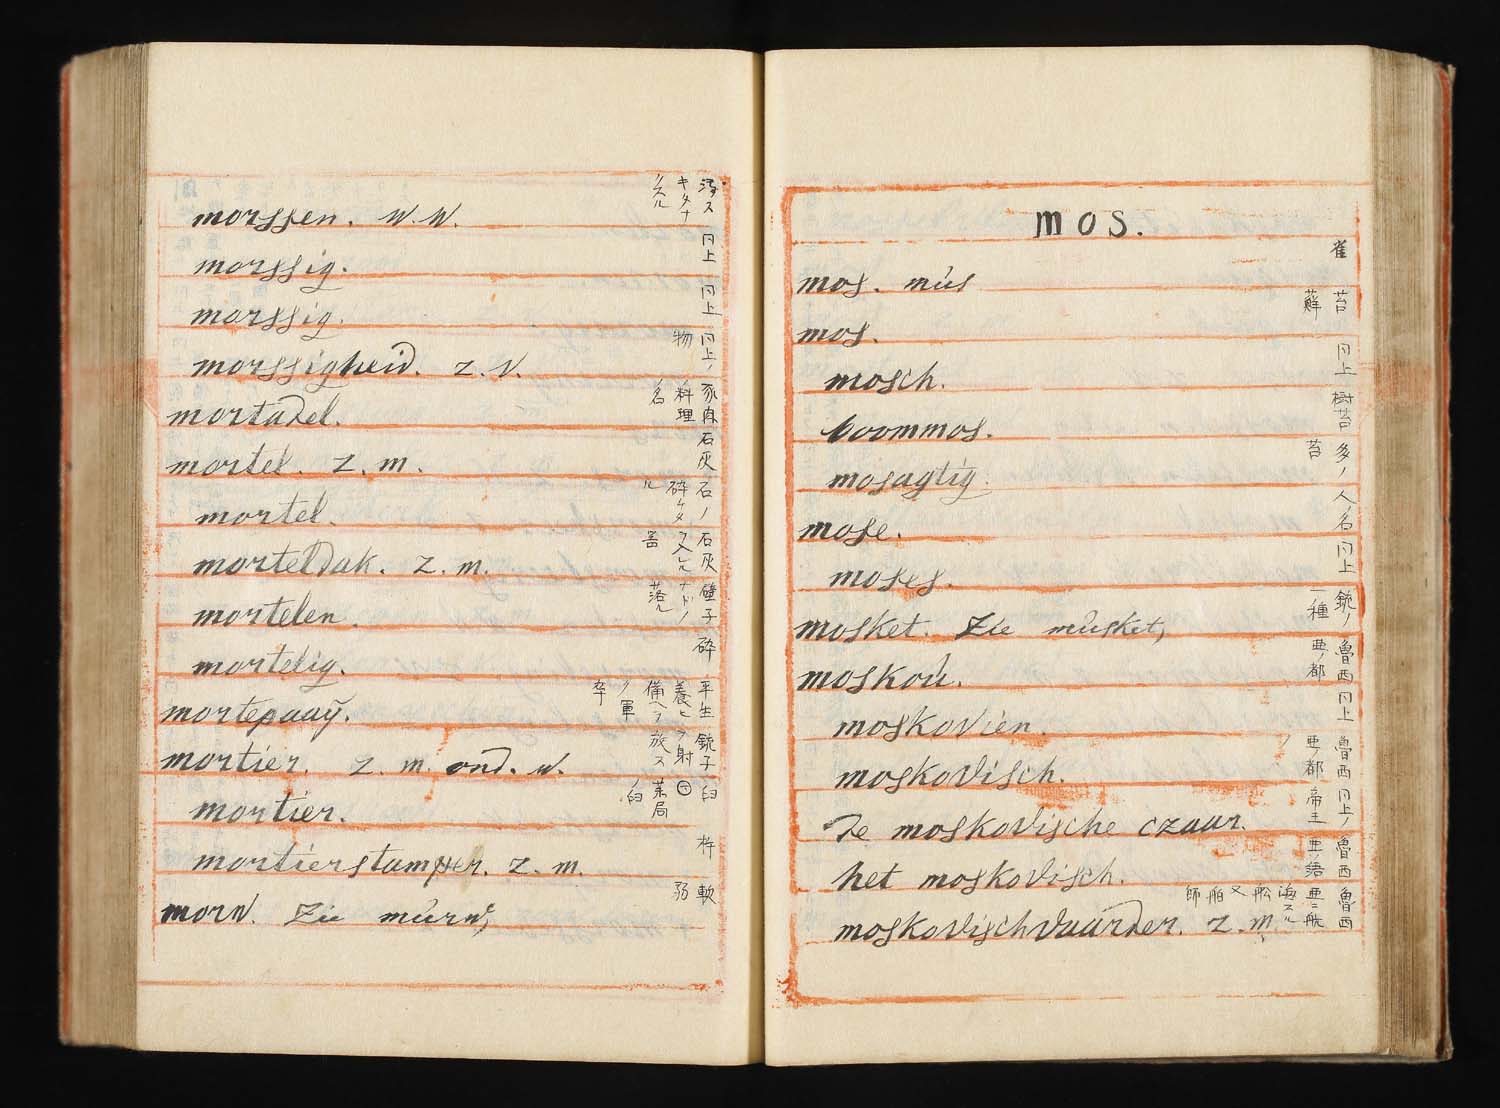 morssen. W. W.
汚ス
キタナ
クスル
morssig.
同上
morssig.
同上
morssigheid. z. V.
同上ノ
物
mortadel.
豕肉
料理
名
mortel. z. m.
石灰
mortel.
石ノ
砕ケタ
ル
morteldak. z. m.
石灰
器
mortelen.
壁ナドノ
落ル
mortelig.
砕
mortepaaÿ.
平生
養ヒ
備ヘ
ノ軍
卒
mortier. z. m. ond. w.
銃子
射
放ス
mortier.
臼
薬局
臼
mortierstamper. z. m.
杵
morw. Zie murw,
軟
弱
mos.
mos. mus
雀
mos.
苔
蘚
mosch.
同上
boommos.
樹苔
mosagtig.
多ノ
苔
mose.
人ノ名
moses.
同上
mosket. Zie musket,
銃ノ
一種
moskou.
魯西
亜ノ都
moskovien.
同上
moskovisch.
魯西
亜ノ都
ノ
De moskovische czaar.
同上ノ
帝王
het moskovisch.
魯西
亜ノ語
moskovischvaarder. z. m.
魯西
亜ニ航
海スル
舩又
舶師